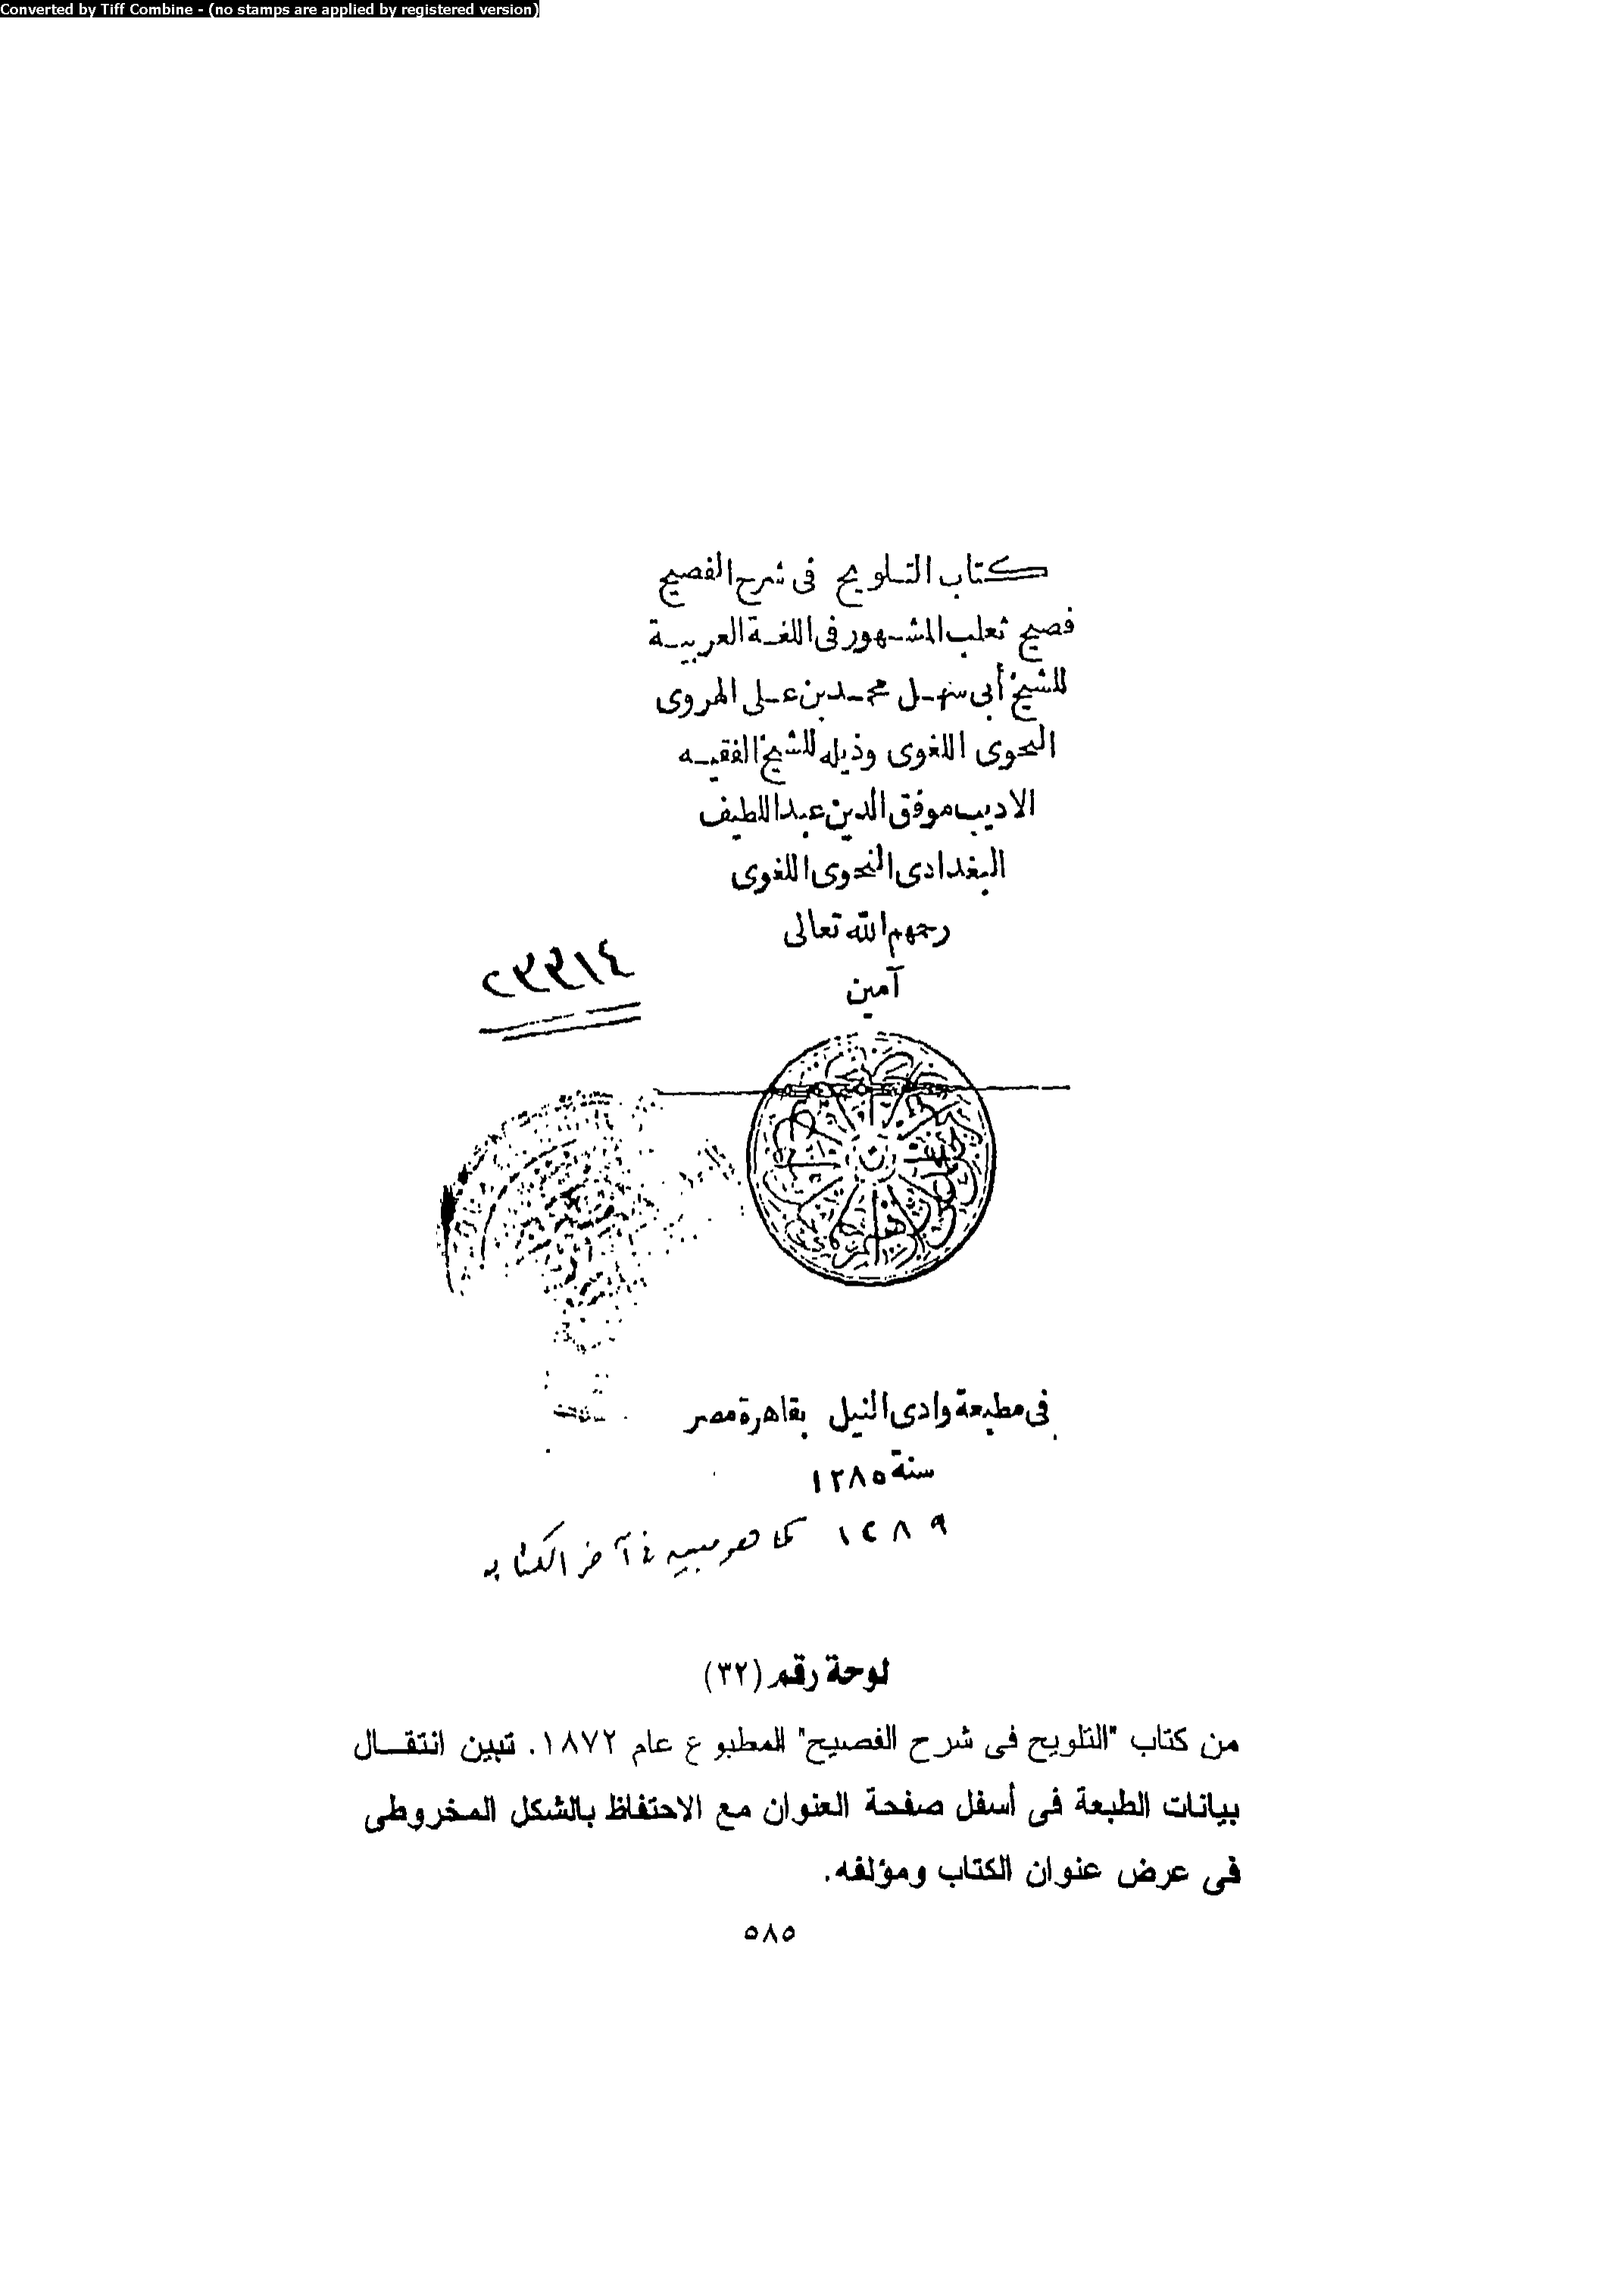 Converted by Tiff Combine - (no stamps are applied by registered version)
كتاب التلويح فى شرح الفصيح
فصيح ثعلب المشهور فى اللغة العربية
للشيخ أبى سهل محمد بن على الهروى
النحوى اللغوى وذيله للشيخ الفقيه
الاديب موفق الدين عبد اللطيف
البغدادى النحوى اللغوى
رحمهم الله تعالى
آمين
٢٣٣١٤
فى مطبعة وادى النيل بقاهرة مصر
سنة ١٢٨٥
١٢٨٩ كما هو مبين فى آخر الكتاب
لوحة رقم (٣٢)
من كتاب "التلويح فى شرح الفصيح" المطبوع عام ١٨٧٢. تبين انتقال
بيانات الطبعة فى أسفل صفحة العنوان مع الاحتفاظ بالشكل المخروطى
فى عرض عنوان الكتاب ومؤلفه.
٥٨٥